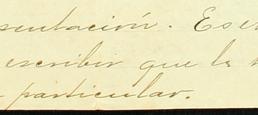 sentación. Ese
escribir que la
particular.